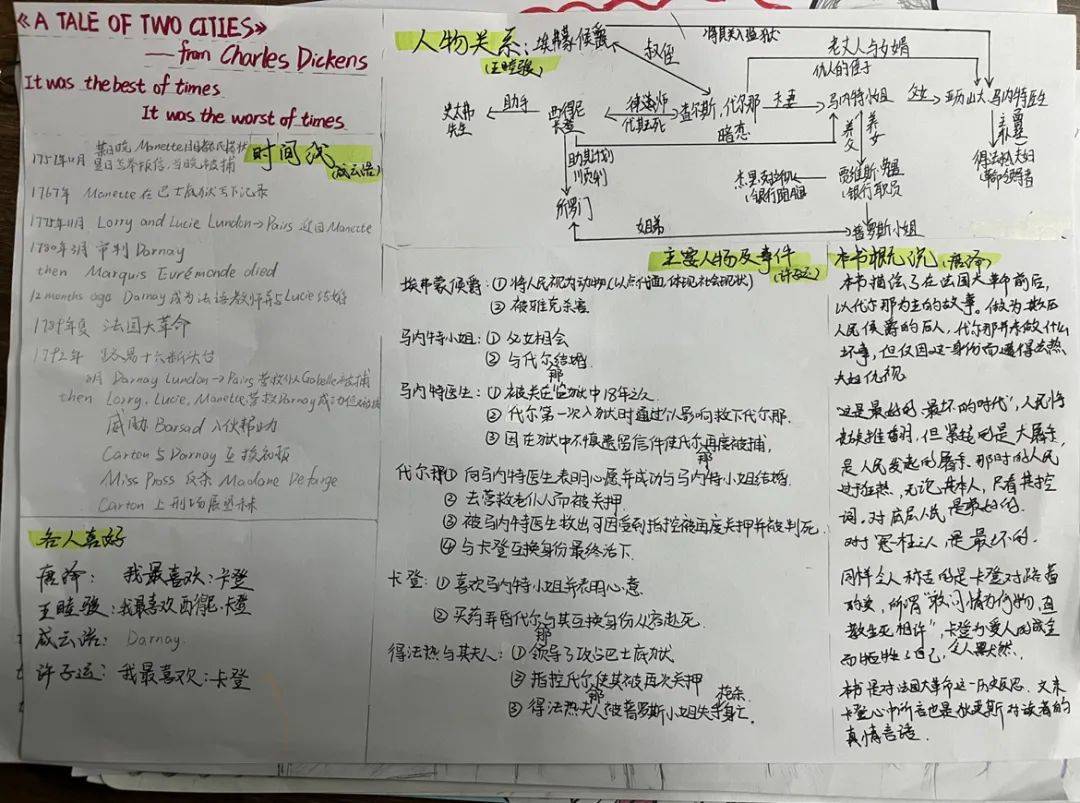 《A TALE OF TWO CITIES》
—from Charles Dickens
It was the best of times
It was the worst of times
时间线
(咸云浩)
1757年12月
1767年 Manette在巴士底狱写下记录
1775年11月 Lorry and Lucie Lundon→Pairs 迎回Manette
1780年3月 审判Darnay
then Marquis Evrémonde died
12 months ago Darnay成为法语教师并与Lucie结婚
1789年夏 法国大革命
1792年 路易十六断头台
8月 Darnay Lundon→Pairs 营救仆人Gabelle被捕
then Lorry, Lucie, Manette营救Darnay成功但又被捕
威胁Barsad入伙帮助
Carton与Darnay互换
Miss Pross反杀Madame Defarge
Carton上刑场
各人喜好
唐泽: 我最喜欢:卡登
王睦骏:我最喜欢西德尼·卡登
咸云浩: Darnay.
许子运: 我最喜欢:卡登
人物关系:埃弗蒙侯爵
(王睦骏)
叔侄
将其关入监狱
老丈人与女婿
仇人的侄子
史太弗先生
助手
西德尼卡登
律师
代其死
查尔斯.代尔那
夫妻
马内特小姐
父女
亚历山大.马内特医生
暗恋
养父
养女
主
得法热夫妇
革命领导者
助其计划顺利
所罗门
杰里
银行跑腿
贾维斯.劳雷
(银行职员
姐弟
普罗斯小姐
主要人物及事件
(许子运)
埃弗蒙侯爵:①将人民视为动物(以点代面,体现社会现状)
②被雅克杀害
马内特小姐:①父女相会
②与代尔那结婚
马内特医生:①被关在监狱中18年之久.
②代尔第一次入狱时通过个人影响救下代尔那.
③因在狱中不慎遗留信件使代尔那再度被捕,
代尔那①向马内特医生表明心愿并成功与马内特小姐结婚.
②去营救老仆人而被关押.
③被马内特医生救出可因受到指控被再度关押并被判死.
④与卡登互换身份最终活下.
卡登:①喜欢马内特小姐并表明心意
②买药弄昏代尔那与其互换身份从容赴死.
得法热与其夫人:①领导了攻占巴士底狱
②指控代尔那使其被再次关押
③得法热夫人被普罗斯小姐失手枪杀身亡.
本书概况
(唐泽)
本书描绘了在法国大革命前后,
以代尔那为主的故事。做为欺压
人民侯爵的后人,代尔那并未做什么
坏事,但仅因这一身份而遭得法热
夫妇仇视
"这是最好的,最坏的时代",人民将
但紧接的是大屠杀,
是人民发起的屠杀.那时的人民
过于狂热,无论其本人,只看其控
词.对底层人民是最好的.
对于冤枉之人,是最坏的.
同样令人称道的是卡登对路茜
的爱,所谓"敢问情为何物,直
教生死相许",卡登为爱人的成全
而牺牲了自己,令人
本书是对法国大革命这一历史反思.文末
卡登心中所言也是狄更斯对读者的
真情言语.